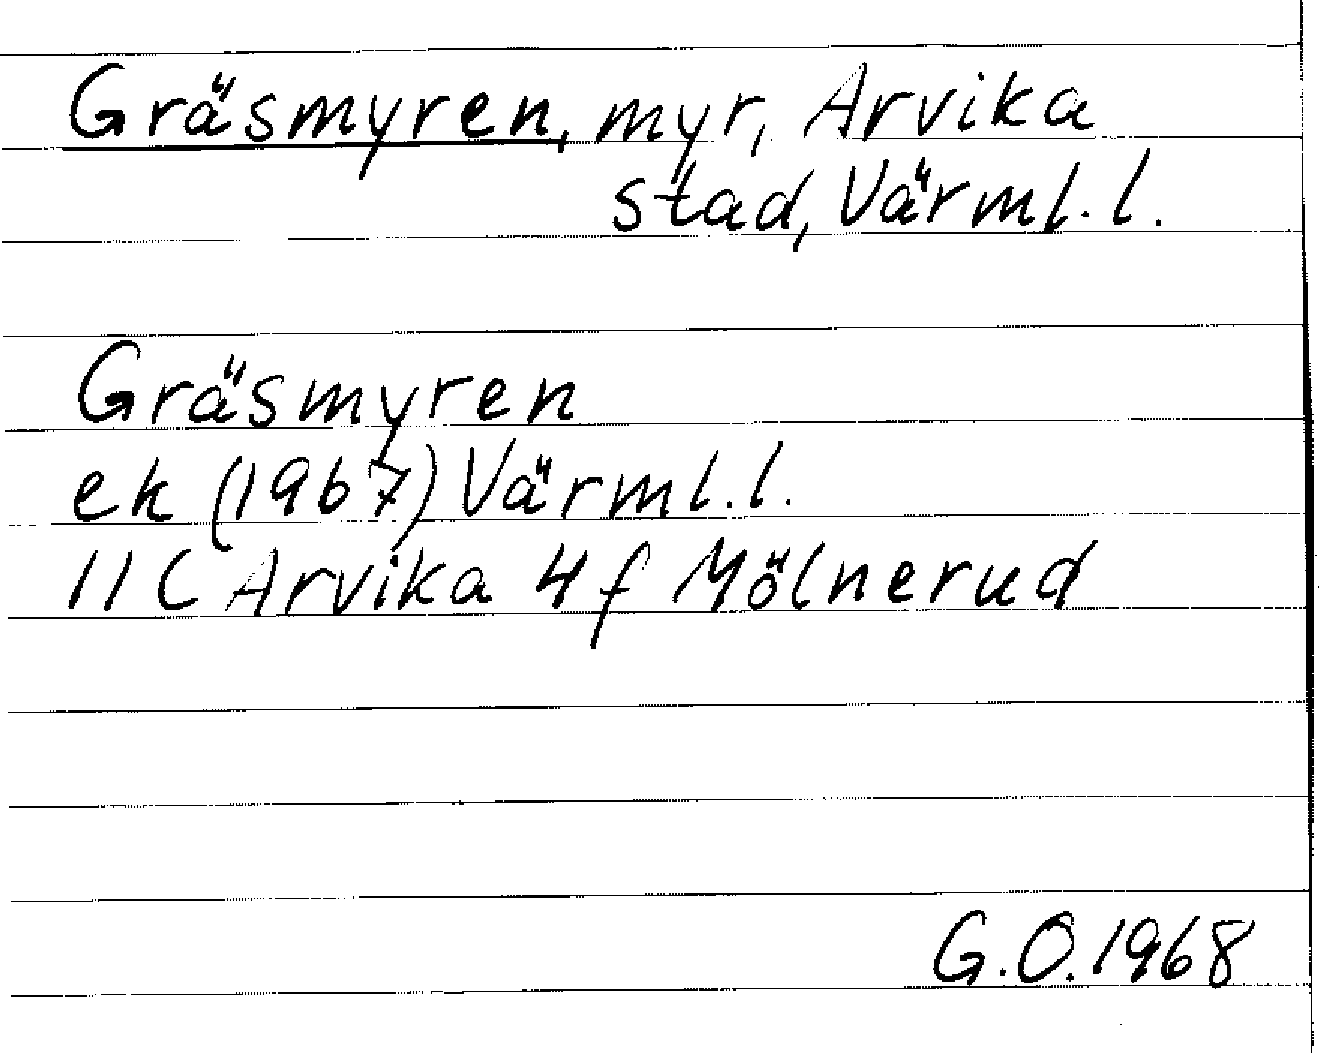 Gräsmyren, myr, Arvika
stad, Värml. l.
Gräsmyren
ek (1967) Värml. l.
11C Arvika 4f Mölnerud
G.O. 1968